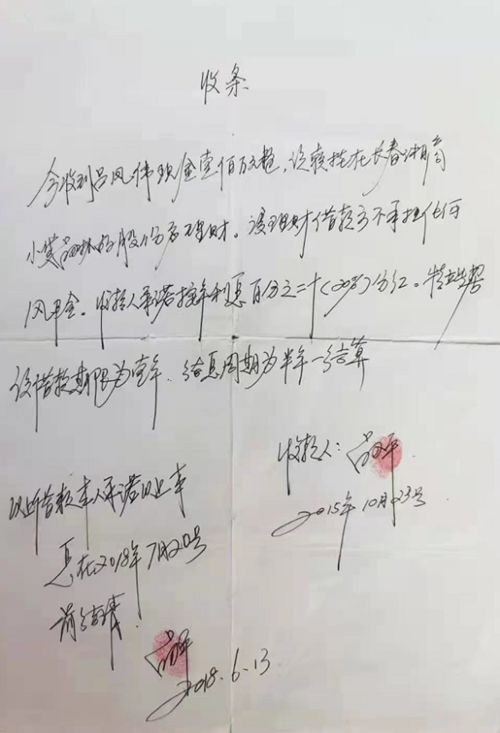 收条
今收到吕凤伟现金壹佰万元整，该款挂在长春
小贷 股份 理财。该理财借款方不承担任何
风险。收款人承诺按年利息百分之二十（20%）分红。
该借款期限为壹年，结息周期为半年一结算
收款人：
2015年10月23号
以上借款本人承诺以上本
息在2018年7月20号
前结清。
2018.6.13